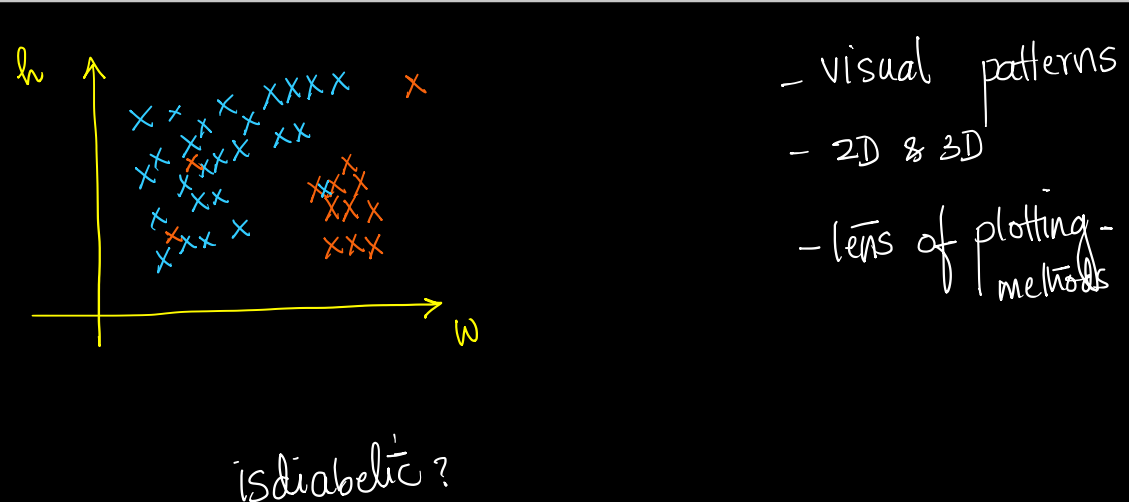 h
- visual patterns
- 2D & 3D
- lens of plotting-
methods
w
isdiabetic?